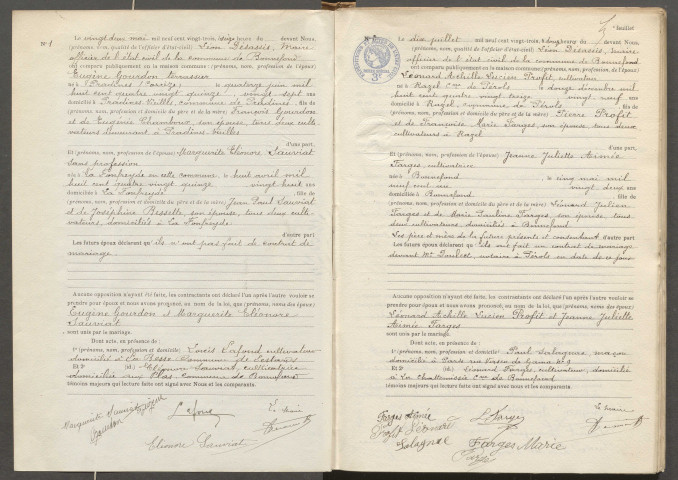 N° 1
Le vingt deux mai mil neuf cent vingt-trois, heures du devant Nous,
(prénoms, nom, qualité de l'officier d'état-civil) Léon Desassis, Maire
officier de l'état civil de la commune de Bonnefond
ont comparu publiquement en la maison commune : (prénoms, nom, profession de l'époux)
Eugène Gourdon
né à Pradines (Corrèze) le quatorze juin mil
huit cent quatre vingt quinze vingt sept ans
domicilié à Pradines commune de Pradines, fils de
(prénoms, nom, profession et domicile du père et de la mère) François Gourdon
et de Eugénie Chambour son épouse, tous deux culti-
vateurs demeurant à Pradines
d'une part.
Et (prénoms, nom, profession de l'épouse) Marguerite Elionore Sauviat
sans profession
née à La Fonfreyde en cette commune le huit avril mil
huit cent quatre vingt quinze vingt huit ans
domiciliée à La Fonfreyde, fille de
(prénoms, nom, profession et domicile du père et de la mère) Jean Paul Sauviat
et de Joséphine Bessette son épouse, tous deux culti-
vateurs, domiciliés à La Fonfreyde
d'autre part
Les futurs époux déclarent qu'ils n'ont pas fait de contrat de
mariage.
Aucune opposition n'ayant été faite, les contractants ont déclaré l'un après l'autre vouloir se
prendre pour époux et nous avons prononcé, au nom de la loi, que (prénoms, nom des époux)
Eugène Gourdon et Marguerite Elionore
Sauviat
sont unis par le mariage.
Dont acte, en présence de :
1° (prénoms, nom, profession et domicile) Louis Lafond cultivateur
domicilié à La Besse commune de Lestards
Et 2° (id.) Elionore Sauviat, cultivatrice
domiciliée aux Plas commune de Bonnefond
témoins majeurs qui lecture faite ont signé avec Nous et les comparants.
Marguerite Sauviat
Gourdon
Lafond
Le Maire
Elionore Sauviat
feuillet
N° 2
Le dix juillet mil neuf cent vingt-trois, heures du devant Nous,
(prénoms, nom, qualité de l'officier d'état-civil) Léon Desassis, maire
officier de l'état civil de la commune de Bonnefond
ont comparu publiquement en la maison commune : (prénoms, nom, profession de l'époux)
Léonard Achille Lucien Profit, cultivateur
né à Razel Cne de Pérols le douze décembre mil
huit cent quatre vingt treize vingt neuf ans
domicilié à Razel, commune de Pérols, fils de
(prénoms, nom, profession et domicile du père et de la mère) Pierre Profit
et de Françoise Marie Farges son épouse tous deux
cultivateurs à Razel
d'une part.
Et (prénoms, nom, profession de l'épouse) Jeanne Juliette Aimée
Farges, cultivatrice
née à Bonnefond le vingt mai mil
neuf cent un vingt deux ans
domiciliée à Bonnefond, fille de
(prénoms, nom, profession et domicile du père et de la mère) Léonard Julien
Farges et de Marie Pauline Farges, son épouse, tous
deux cultivateurs domiciliés à Bonnefond
Les père et mère de la future présents et consentant d'autre part
Les futurs époux déclarent qu'ils ont fait un contrat de mariage
devant Me notaire à Pérols en date de ce jour
Aucune opposition n'ayant été faite, les contractants ont déclaré l'un après l'autre vouloir se
prendre pour époux et nous avons prononcé, au nom de la loi, que (prénoms, nom des époux)
Léonard Achille Lucien Profit et Jeanne Juliette
Aimée Farges
sont unis par le mariage.
Dont acte, en présence de :
1° (prénoms, nom, profession et domicile) Paul Salagnac, maçon
domicilié à Paris
Et 2° (id.) Léonard Farges, cultivateur, domicilié
à Cne de Bonnefond
témoins majeurs qui lecture faite ont signé avec Nous et les comparants.
Farges Aimée
Profit Léonard
Salagnac
L. Farges
Farges Marie
Farges
Le maire